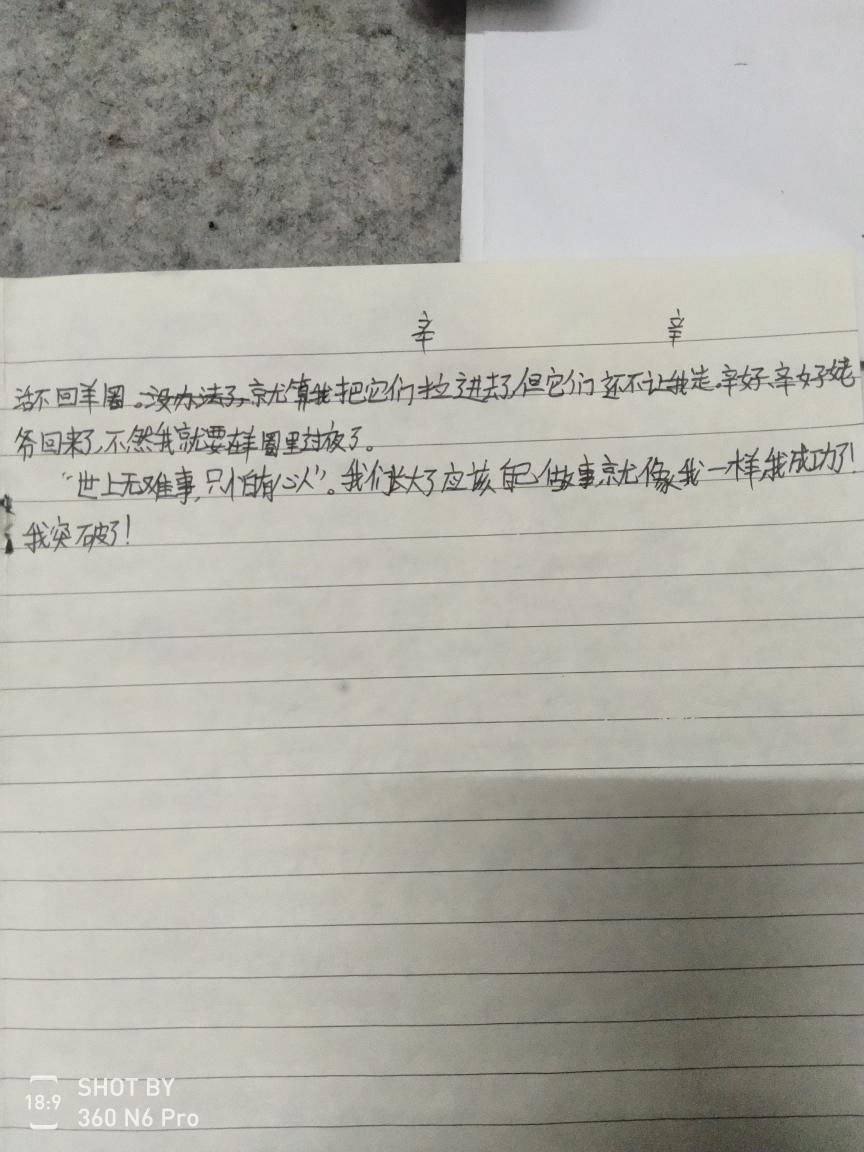 辛 辛
活不回羊圈。没办法了,就算我把它们拉进去了,但它们还不让我走。辛好、辛好姥
爷回来了,不然我就要在羊圈里过夜了。
“世上无难事,只怕有心人”。我们长大了应该自己做事,就像我一样,我成功了!
我突破了!
18:9 SHOT BY
360 N6 Pro